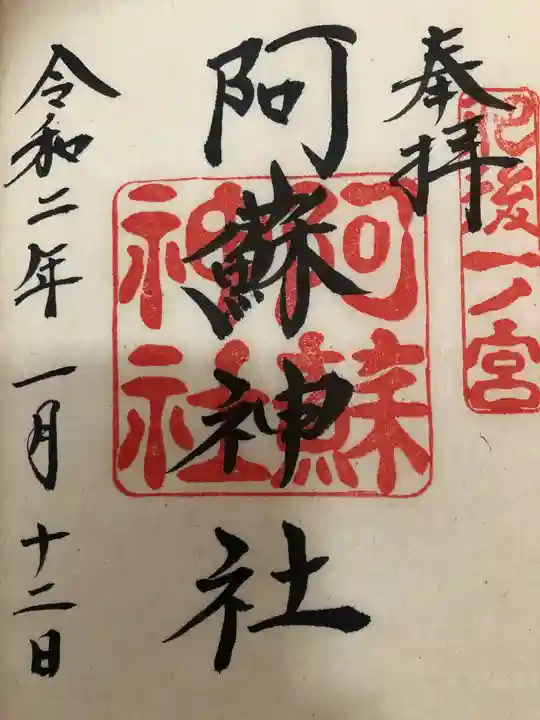 肥後一ノ宮
奉拝
阿蘇神社
阿蘇
神社
令和二年一月十二日